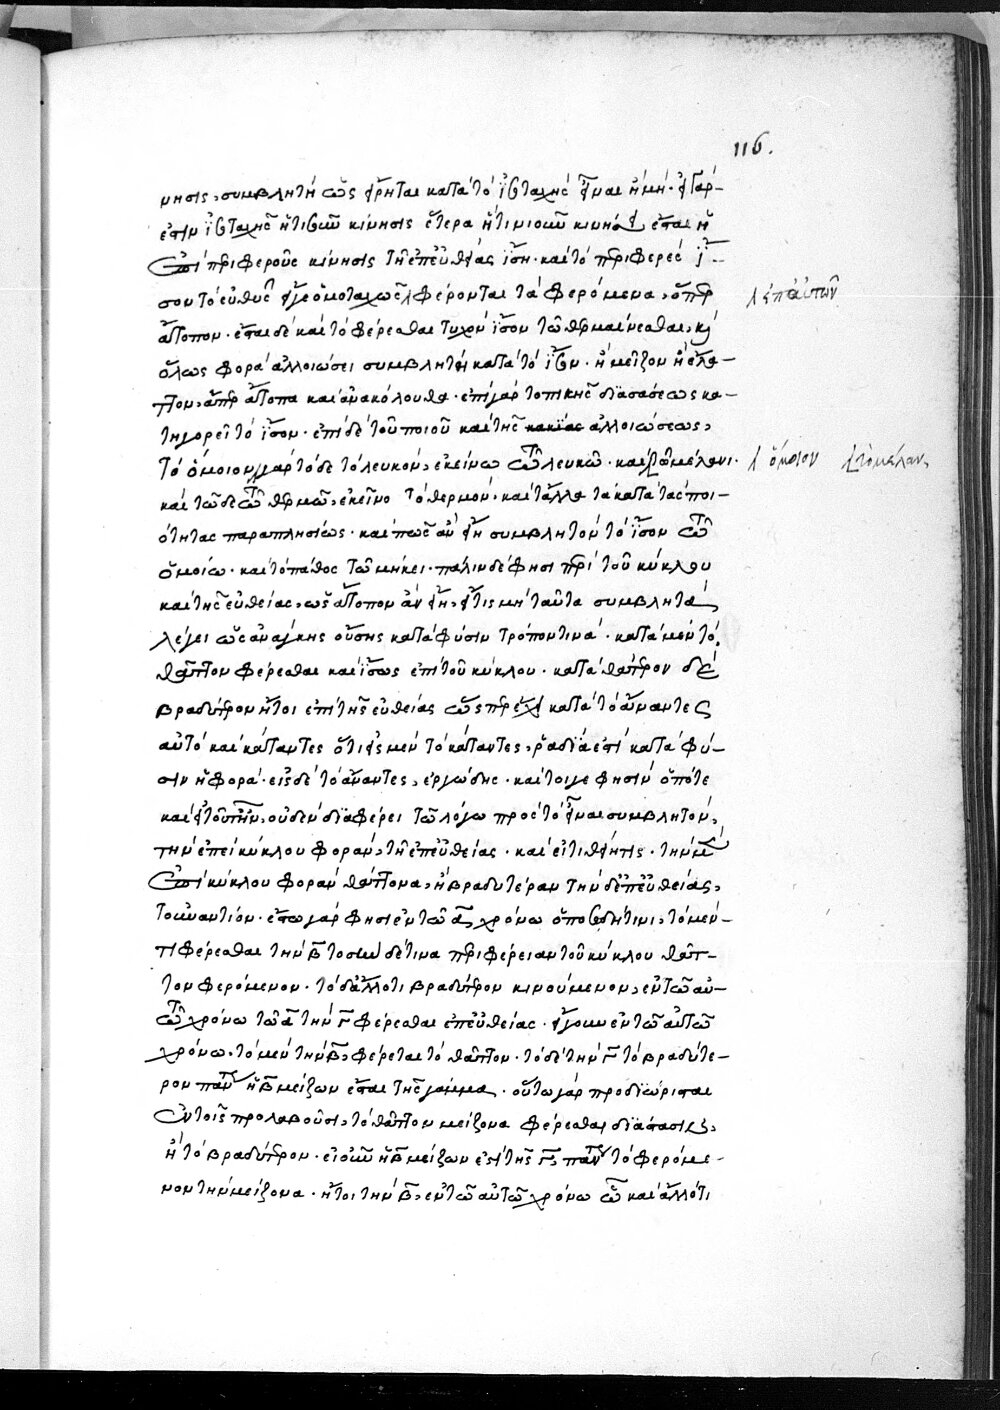 116.
νησις, συμβλητὴ ὡς εἴρηται κατὰ τὸ ἰσοταχές εἶναι ἢ μή· εἰ γάρ
ἐστιν ἰσοταχὴς ἥτισοῦν κίνησις ἑτέρα ᾗτινιοῦν κινήσει ἔσται ἡ
ἐπὶ περιφεροῦς κίνησις τῇ ἐπ' εὐθείας ἴση· καὶ τὸ περιφερὲς ἴ-
σον τῷ εὐθεῖ εἴγε ὁμοταχῶς φέρονται τὰ φερόμενα, ὅπερ
ἐπ' αὐτῶν
ἄτοπον· ἔσται δὲ καὶ τὸ φέρεσθαι τυχὸν ἴσον τῷ θερμαίνεσθαι, καὶ
ὅλως φορὰ ἀλλοιώσει συμβλητὴ κατὰ τὸ ἴσον· ἢ μεῖζον ἢ ἔλα-
ττον, ἅπερ ἄτοπα καὶ ἀνακόλουθα· ἐπὶ γὰρ τοπικῆς διαστάσεως κα-
τηγορεῖ τὸ ἴσον· ἐπὶ δὲ τοῦ ποιοῦ καὶ τῆς κακίας ἀλλοιώσεως,
τὸ ὅμοιον γὰρ τόδε τὸ λευκόν, ἐκείνω τῷ λευκῷ· καὶ τῷ μέλανι·
ὅμοιον τὸ μέλαν,
καὶ τῷδε τῷ θερμῷ, ἐκεῖνο τὸ θερμόν, καὶ τἄλλα τὰ κατὰ τὰς ποι-
ότητας παραπλησίως· καὶ πῶς ἂν εἴη συμβλητὸν τὸ ἴσον τῷ
ὁμοίω· καὶ τὸ πάθος τῷ μήκει· πάλιν δέ φησι περὶ τοῦ κύκλου
καὶ τῆς εὐθείας, ὡς ἄτοπον ἂν εἴη, εἴ τις μὴ ταῦτα συμβλητὰ
λέγει ὡς ἀνάγκης οὔσης κατὰ φύσιν τρόπον τινά· κατὰ μὲν τὸ
θᾶττον φέρεσθαι καὶ ἴσως ἐπὶ τοῦ κύκλου· κατὰ θάτερον δὲ
βραδύτερον ἤτοι ἐπὶ τῆς εὐθείας ὥσπερ ἔχει κατὰ τὸ ἄναντες
αὐτὸ καὶ κάταντες ὅτι εἰς μὲν τὸ κάταντες, ῥαδία ἐστὶ κατὰ φύ-
σιν ἡ φορά· εἰς δὲ τὸ ἄναντες, ἐργώδης· καίτοιγε φησὶν ὁπότε
καὶ εἰ τοῦτ' ἦν, οὐδὲν διαφέρει τῷ λόγω πρὸς τὸ εἶναι συμβλητόν,
τὴν ἐπὶ κύκλου φοράν, τῇ ἐπ' εὐθείας· καὶ εἴ τι θείη τις· τὴν μὲν
ἐπὶ κύκλου φορὰν θάττονα, ἢ βραδυτέραν τὴν δ' ἐπ' εὐθείας,
τοὐναντίον· ἔστω γάρ φησι ἐν τῷ α χρόνω ὁποσωδήτινι, τὸ μέν
τι φέρεσθαι τὴν β τοσήνδέ τινα περιφέρειαν τοῦ κύκλου θᾶτ-
τον φερόμενον· τὸ δ' ἄλλό τι βραδύτερον κινούμενον, ἐν τῷ αὐ-
τῷ χρόνω τῷ α τὴν γ φέρεσθαι ἐπ' εὐθείας· εἰ γοῦν ἐν τῷ αὐτῷ
χρόνω, τὸ μὲν τὴν β, φέρεται τὸ θᾶττον· τὸ δὲ τὴν γ τὸ βραδύτε-
ρον πάντως ἡ β μείζων ἔσται τῆς γάμμα· οὕτω γὰρ προδιώρισται
ἐν τοῖς προλαβοῦσι, τὸ θᾶττον μείζονα φέρεσθαι διάστασιν,
ἢ τὸ βραδύτερον· εἰ οὖν ἡ β μείζων ἐστὶ τῆς γ, πάντως τὸ φερόμε-
νον τὴν μείζονα· ἤτοι τὴν β, ἐν τῷ αὐτῷ χρόνω ὧ καὶ ἄλλό τι